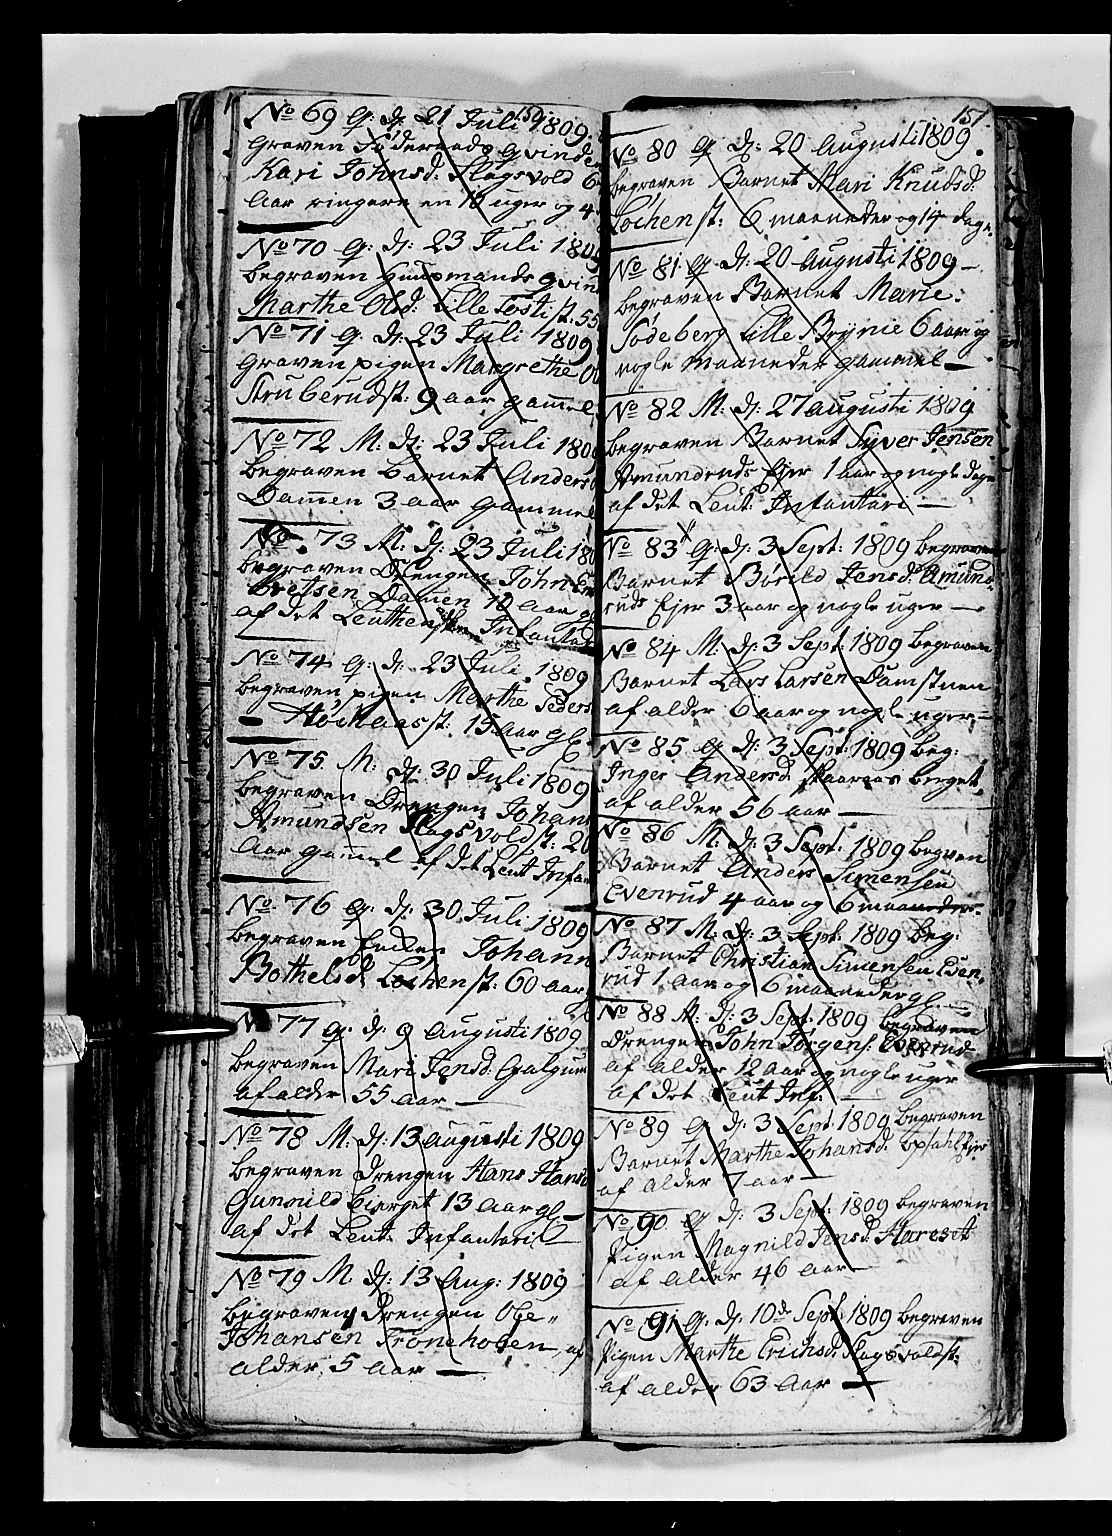 159.
No 69 Q: D: 21 Juli 1809.
graven Föderaads qvinde
Kari Johnsd. Slagsvold 6
Aar ringere en 16 uger og 4
No 70 Q: D: 23 Juli 1809
begraven Huusmands qvin
Marthe Olsd: Lille Tosti st: 55
No 71 Q. D: 23 Juli 1809
graven pigen Margrethe Ol
Struberudst: 9 aar gam̄el
No 72 M: D: 23 Juli 1809
begraven barnet Anders
Dam̄en 3 aar gammel
No. 73 M: D: 23 Juli 180
begraven Drengen John En
bretsen Dam̄en 10 aar og
af det Leuthen Infantari
No 74 Q: D: 23 Juli. 1809
begraven pigen Marthe Peders
st: 15 Aar gl
No 75 M: D: 30 Juli 1809
begraven Drengen Johan
Amundsen Slagsvoldst: 20
Aar gam̄el af det Leut Infan
No. 76 Q: D: 30. Juli 1809
begraven Encken Johann
Bothelsd Lochen st: 60 aar
No 77 Q: D: 9 Augusti 1809
begraven Mari Jensd. Galgum
af alder 55 aar —
No 78 M: D: 13 augusti 1809
begraven Drengen Hans Hans
Gunnild bierget 13 aar gl —
af det Leut: Infantari
No 79 M. D: 13 Aug: 1809
begraven Drengen Ole
Johansen Troneholen, af
alder, 5 aar —
151.
No 80 Q D: 20 Augusti 1809.
begraven Barnet Mari Knudsd.
Lochen st: 6 maaneder og 14 dage.
No 81 Q: D: 20 Augusti 1809 —
begraven Barnet Marie:
Sodeberg Lille Brynie 6 aar og
nogle Maaneder gammel —
No 82 M: D: 27 augusti 1809
begraven Barnet Syver Jensen
Amundruds Ejer 1 aar og nogle dage
af det Leut: Infantari —
No 83 Q: D: 3 Sept: 1809 begraven
Barnet Børild Jensd. Amund-
ruds Ejer 3 aar og nogle uger —
No 84 M: D: 3 Sept: 1809 begraven
Barnet Lars Larsen Damstuen
af alder 6 aar og nogle uger —
No 85 Q D: 3 Sept: 1809 beg:
Inger Andersd. berget,
af alder 56 aar —
No 86 M. D: 3 Sept: 1809 begrven
Barnet Anders Simensen
Evenrud 4 aar og 6 maaneder.
No 87 M: D: 3 Sept. 1809 beg:
Barnet Christian Simensen Even-
rud 1 aar og 6 maaneder gl —
No 88 M: D: 3 Sept: 1809 begraven
Drengen John Jörgens: Evenrud
af alder 12 aar og nogle uger
af det Leut Inf: —
No 89 Q D: 3 Sept 1809 begraven
Barnet Marthe Johansd.
af alder 7 aar —
No 90. Q D: 3 Sept: 1809 begraven
Pigen Magnild Jensd. Hareset
af alder 46 aar —
No 91 Q: D: 10de Sept 1809 begraven
Pigen Marthe Erichsd. Slagsvoldst:
af alder 63 Aar —